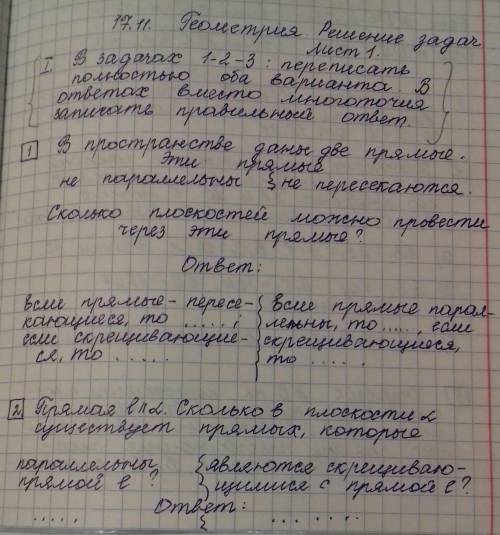 17.11. Геометрия Решение задач
Лист 1.
I. В задачах 1-2-3: переписать
полностью оба варианта В
ответах вместо многоточия
записать правильный ответ.
1 В пространстве даны две прямые.
Эти прямые
не параллельны { не пересекаются.
Сколько плоскостей можно провести
через эти прямые?
Ответ:
Если прямые - пересе- { Если прямые парал-
кающиеся, то .....; { лельны, то ....., если
если скрещивающие- { скрещивающиеся,
ся, то ..... { то .....
2 Прямая l II α. Сколько в плоскости α
существует прямых, которые
параллельны { являются скрещиваю-
прямой l ? { щимися с прямой l?
Ответ:
..... { .......